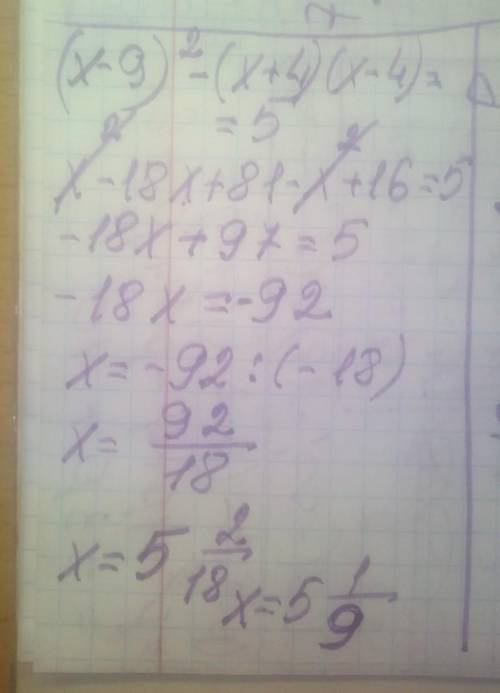 (x-9)²-(x+4)(x-4)=
=5
x²-18x+81-x²+16=5
-18x+97=5
-18x=-92
x=-92:(-18)
x=92/18
x=5 2/18
x=5 1/9